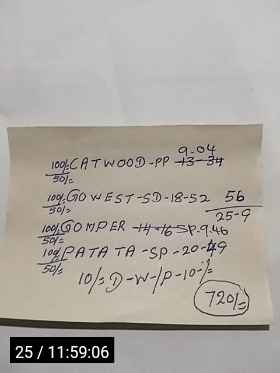 9-04
100/= CATWOOD-PP 13-34
50/=
100/= GO WEST-SD-18-52 56
50/= 25-9
100/= GOMPER 14-16 SP-9.46
50/=
100/= PATATA-SP-20-49
50/=
10/= D-W-/P-10-/=
720/=
25 / 11:59:06